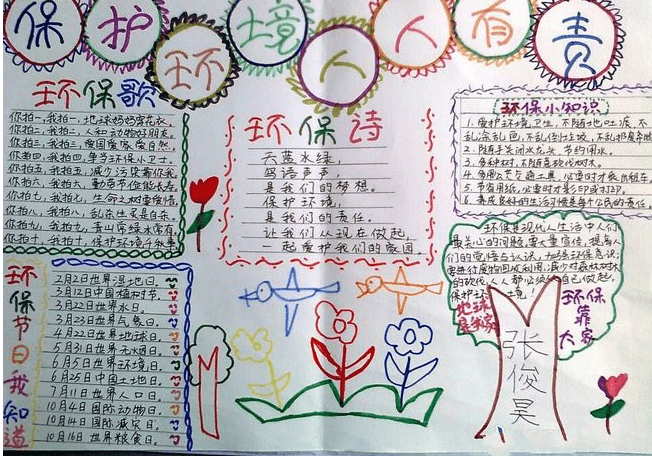 保护环境人人有责
环保歌
你拍一，我拍一，地球妈妈穿花衣。
你拍二，我拍二，人和动物好朋友。
你拍三，我拍三，爱国爱家爱自然。
你拍四，我拍四，争当环保小卫士。
你拍五，我拍五，减少污染靠你我。
你拍六，我拍六，勤
你拍七，我拍七，生命之树要爱惜。
你拍八，我拍八，乱杀
你拍九，我拍九，青山常绿水常有。
你拍十，我拍十，保护环境千秋事。
环保诗
天蓝水绿，
鸟语声声，
是我们的梦想。
保护环境，
是我们的责任。
让我们从现在做起，
一起爱护我们的家园。
环保小知识
1.爱护环境卫生，不随地吐痰，不
乱涂乱画，不乱倒垃圾，不
2.随手关闭水龙头，节约用水。
3.多种树，不随意砍伐树木。
4.多用公共交通工具，必要时才
5.节省用纸，必要时才影印或打印。
6.养成良好的生活习惯是每个公民的责任。
环保是现代人生活中人们
最关心的问题，要大量宣传，提高人
们的觉悟与认识，加强环保意识；
的砍伐，人人都必须从自己做起，
保护环境
地球
是我家
环保
靠
大家
张俊昊
环保节日我知道
2月2日世界湿地日。
3月12日中国植树节。
3月22日世界水日。
3月23日世界气象日。
4月22日世界地球日。
5月31日世界无烟日。
6月5日世界环境日。
6月25日中国土地日。
7月11日世界人口日。
10月4日国际动物日。
10月14日国际减灾日。
10月16日世界粮食日。